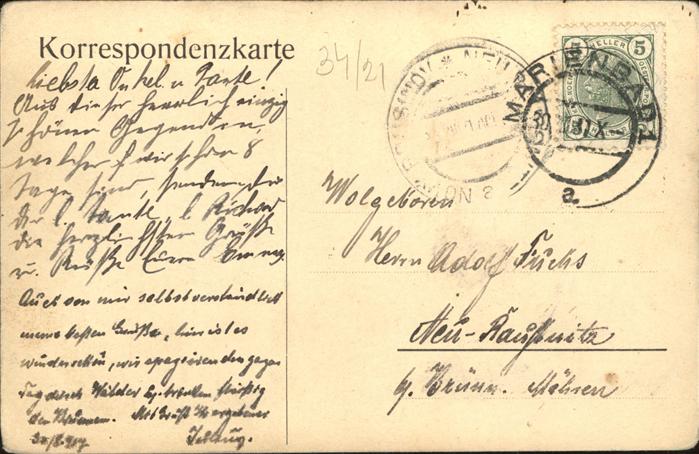 Korrespondenzkarte
34/21
5 HELLER 5
MARIENBAD 1
a
Liebste Onkel u. Tante!
Aus dieser herrlich einzig
schönen Gegenden,
welcher wir schon 8
Tage sind, senden
der l. Tante, l. Richard
die herzlichsten Grüße
u. Küsse Euere
Auch von mir selbstverständlich
meine besten Grüße, hier ist es
wunderschön, wir spazieren den ganzen
Tag durch Wälder trinken fleißig
den Brunnen. Mit Gruß Ihr ergebener
Wolgeboren
Herrn Adolf Fuchs
Neu-Raußnitz
b/ Brünn. Mähren